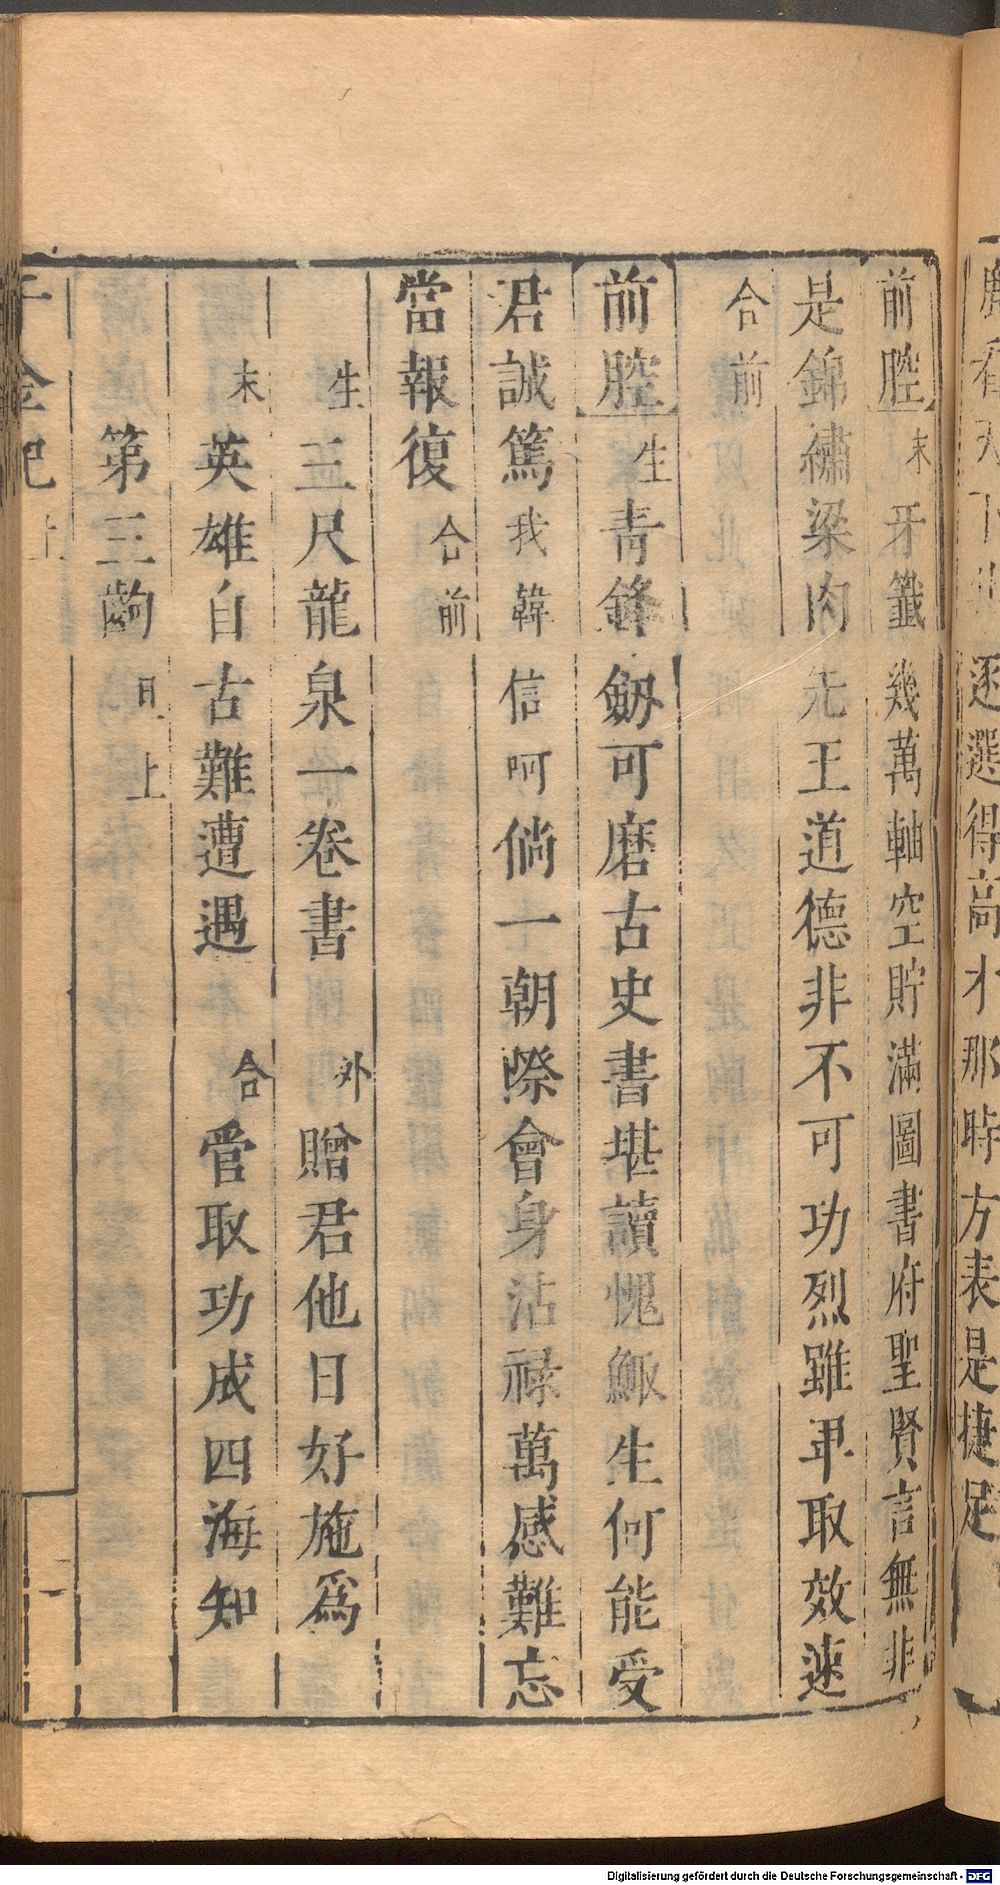 逐選得高才那時方表是捷足
前腔末牙籤幾萬軸空貯滿圖書府聖賢言無非
是錦繡梁肉先王道德非不可功烈雖卑取效速
合前
前腔生青鋒劔可磨古史書堪讀愧鯫生何能受
君誠篤我韓信呵倘一朝際會身沾祿萬感難忘
當報復合前
生三尺龍泉一卷書外贈君他日好施爲
末英雄自古難遭遇合管取功成四海知
第三齣旦上
千金記上
Digitalisierung gefördert durch die Deutsche Forschungsgemeinschaft - DFG